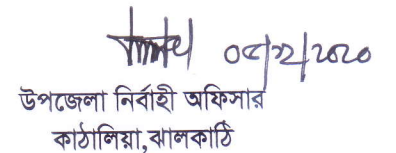 ০৮/১২/২০২০
উপজেলা নির্বাহী অফিসার
কাঠালিয়া,ঝালকাঠি